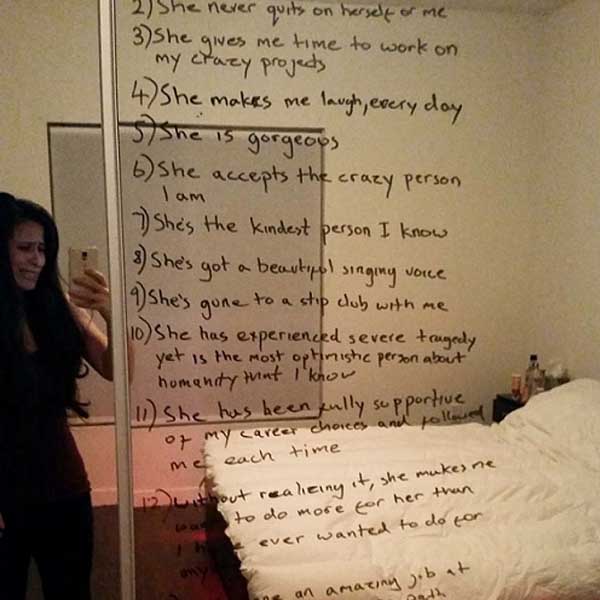 2) She never quits on herself or me
3) She gives me time to work on
my crazy projects
4) She makes me laugh, every day
5) She is gorgeous
6) She accepts the crazy person
I am
7) She's the kindest person I know
8) She's got a beautiful singing voice
9) She's gone to a stip club with me
10) She has experienced severe tragedy
yet is the most optimistic person about
humanity that I know
11) She has been fully supportive
of my career choices and followed
me each time
12) without realizing it, she makes me
to do more for her than
I ever wanted to do for
an amazing job at